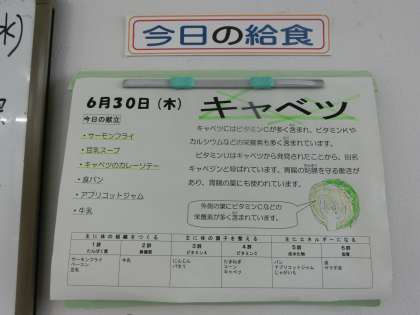 今日の給食
6月30日(木)
キャベツ
今日の献立
・サーモンフライ
・豆乳スープ
・キャベツのカレーソテー
・食パン
・アプリコットジャム
・牛乳
キャベツにはビタミンCが多く含まれ、ビタミンKや
カルシウムなどの栄養素も多く含まれています。
ビタミンUはキャベツから発見されたことから、別名
キャベジンと呼ばれています。胃腸の粘膜を守る働きが
あり、胃腸の薬にも使われています。
外側の葉にビタミンCなどの
栄養素が多く含まれています。
主に体の組織をつくる
主に体の調子を整える
主にエネルギーになる
1群
2群
3群
4群
5群
6群
たんぱく質
無機質
ビタミンA
ビタミンC
炭水化物
脂質
サーモンフライ
ベーコン
豆乳
牛乳
にんじん
パセリ
たまねぎ
コーン
キャベツ
パン
アプリコットジャム
じゃがいも
油